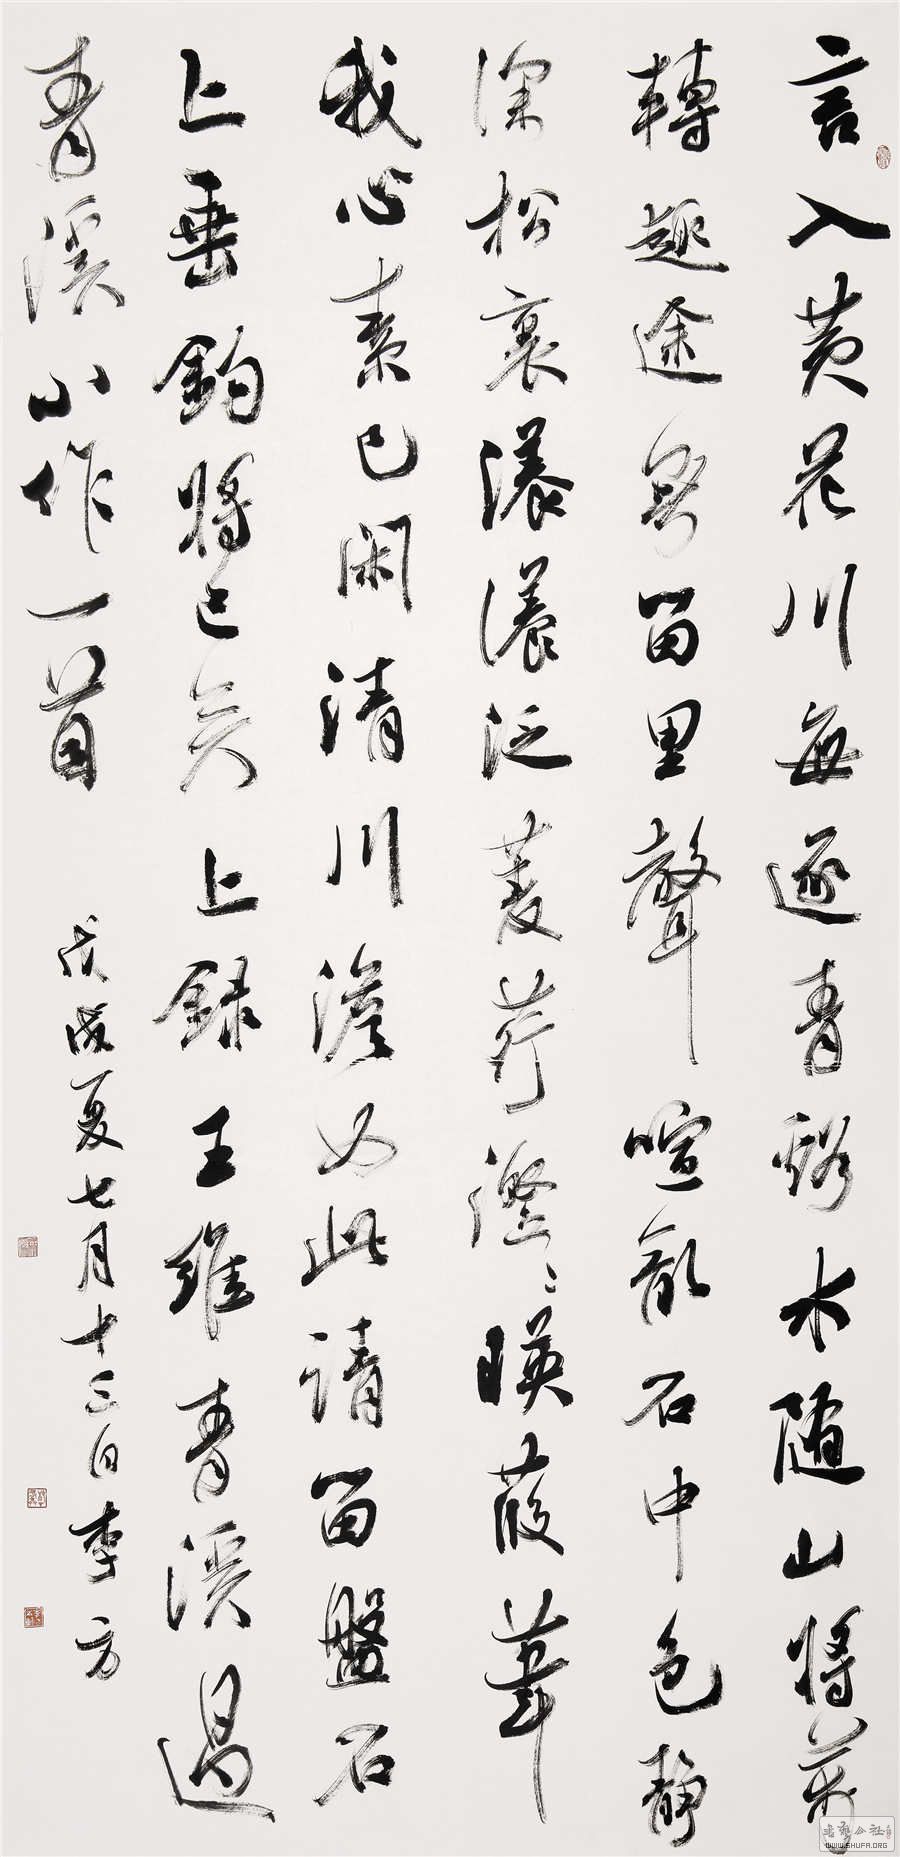 言入黄花川每逐青谿水随山将萬
轉趣途無百里聲喧亂石中色静
深松裏漾漾泛菱荇澄〻暎葭葦
我心素已閑清川澹如此請留盤石
上垂釣将已矣 上録王維青溪過
青溪小作一首 戊戌夏七月十三日李方
書艺公社
WWW.SHUFA.ORG